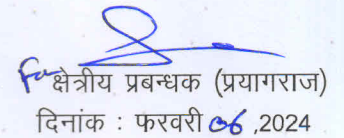 For क्षेत्रीय प्रबन्धक (प्रयागराज)
दिनांक : फरवरी 06 ,2024